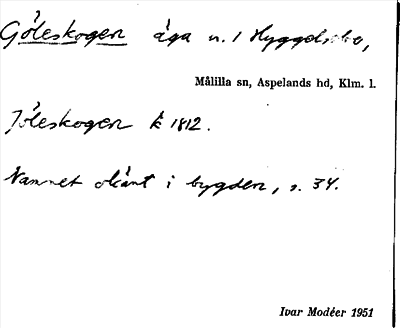 Göleskogen äga n. 1 Hyggelsbo,
Målilla sn, Aspelands hd, Klm. l.
Jöleskogen k 1812.
Namnet okänt i bygden, s. 34.
Ivar Modéer 1951